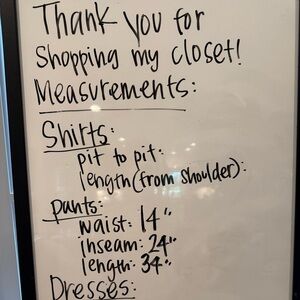 Thank you for
Shopping my closet!
Measurements:
Shirts:
pit to pit:
length (from shoulder):
pants:
waist: 14"
inseam: 24"
length: 34"
Dresses: